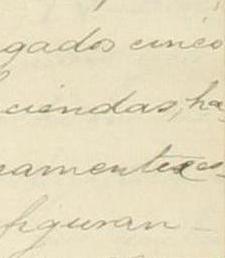 gados cinco
ciendas, ha
camente es-
figuran -